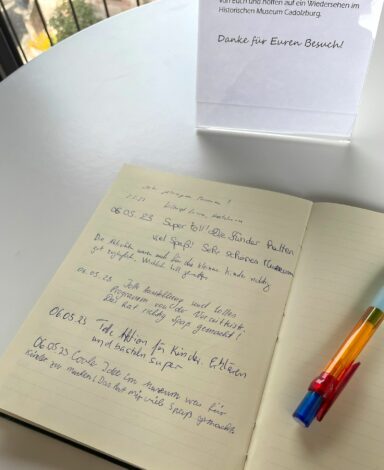 von Euch und hoffen auf ein Wiedersehen im
Historischen Museum Cadolzburg.
Danke für Euren Besuch!
06.05.23 Super toll! Die Kinder hatten
viel Spaß! Sehr schönes Museum
Die waren auch für die kleinen Kinder richtig
gut
06.05.23 Tolle Ausstellung und tolles
Programm von der
Das hat richtig Spaß gemacht!
06.05.23 Tolle Aktion für Kinder. Erklären
und basteln super
06.05.23 Coole Idee im Museum was für
Kinder zu machen! Das hat mir viel Spaß gemacht